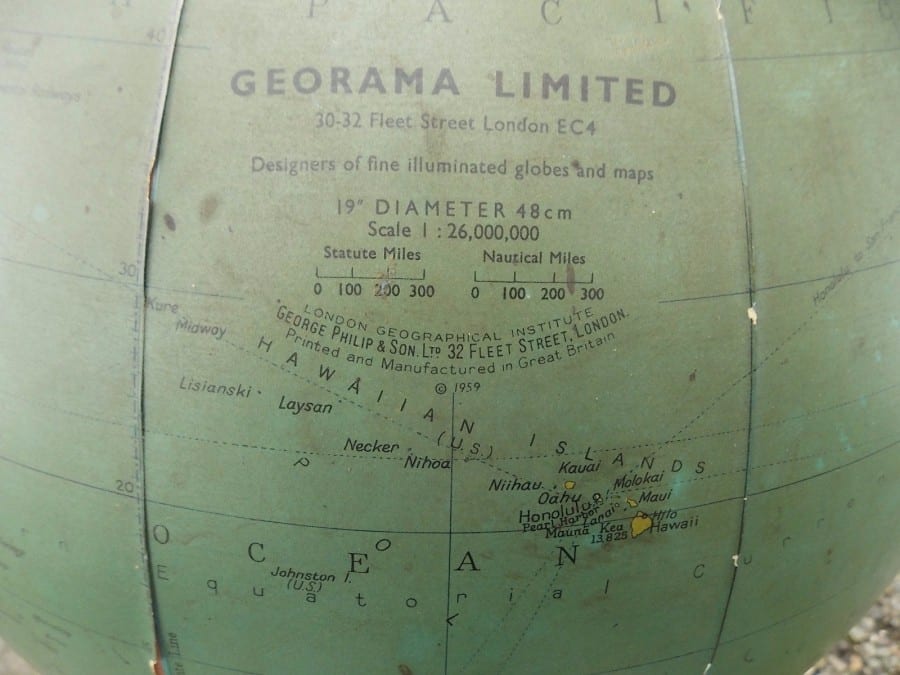 P A C I F I C
40
GEORAMA LIMITED
30-32 Fleet Street London EC4
Designers of fine illuminated globes and maps
19" DIAMETER 48cm
Scale 1 : 26,000,000
Statute Miles
0 100 200 300
Nautical Miles
0 100 200 300
30
LONDON GEOGRAPHICAL INSTITUTE
GEORGE PHILIP & SON. LTD 32 FLEET STREET, LONDON.
Printed and Manufactured in Great Britain
© 1959
Honolulu to San
Kure
Midway
HAWAIIAN ISLANDS
(U.S.)
Lisianski
Laysan
Necker
Nihoa
Kauai
Niihau
Oahu
Molokai
Honolulu
Pearl Harbor
Lanai
Maui
Mauna Kea
13,825
Hilo
Hawaii
20
OCEAN
Johnston I.
(U.S.)
Equatorial